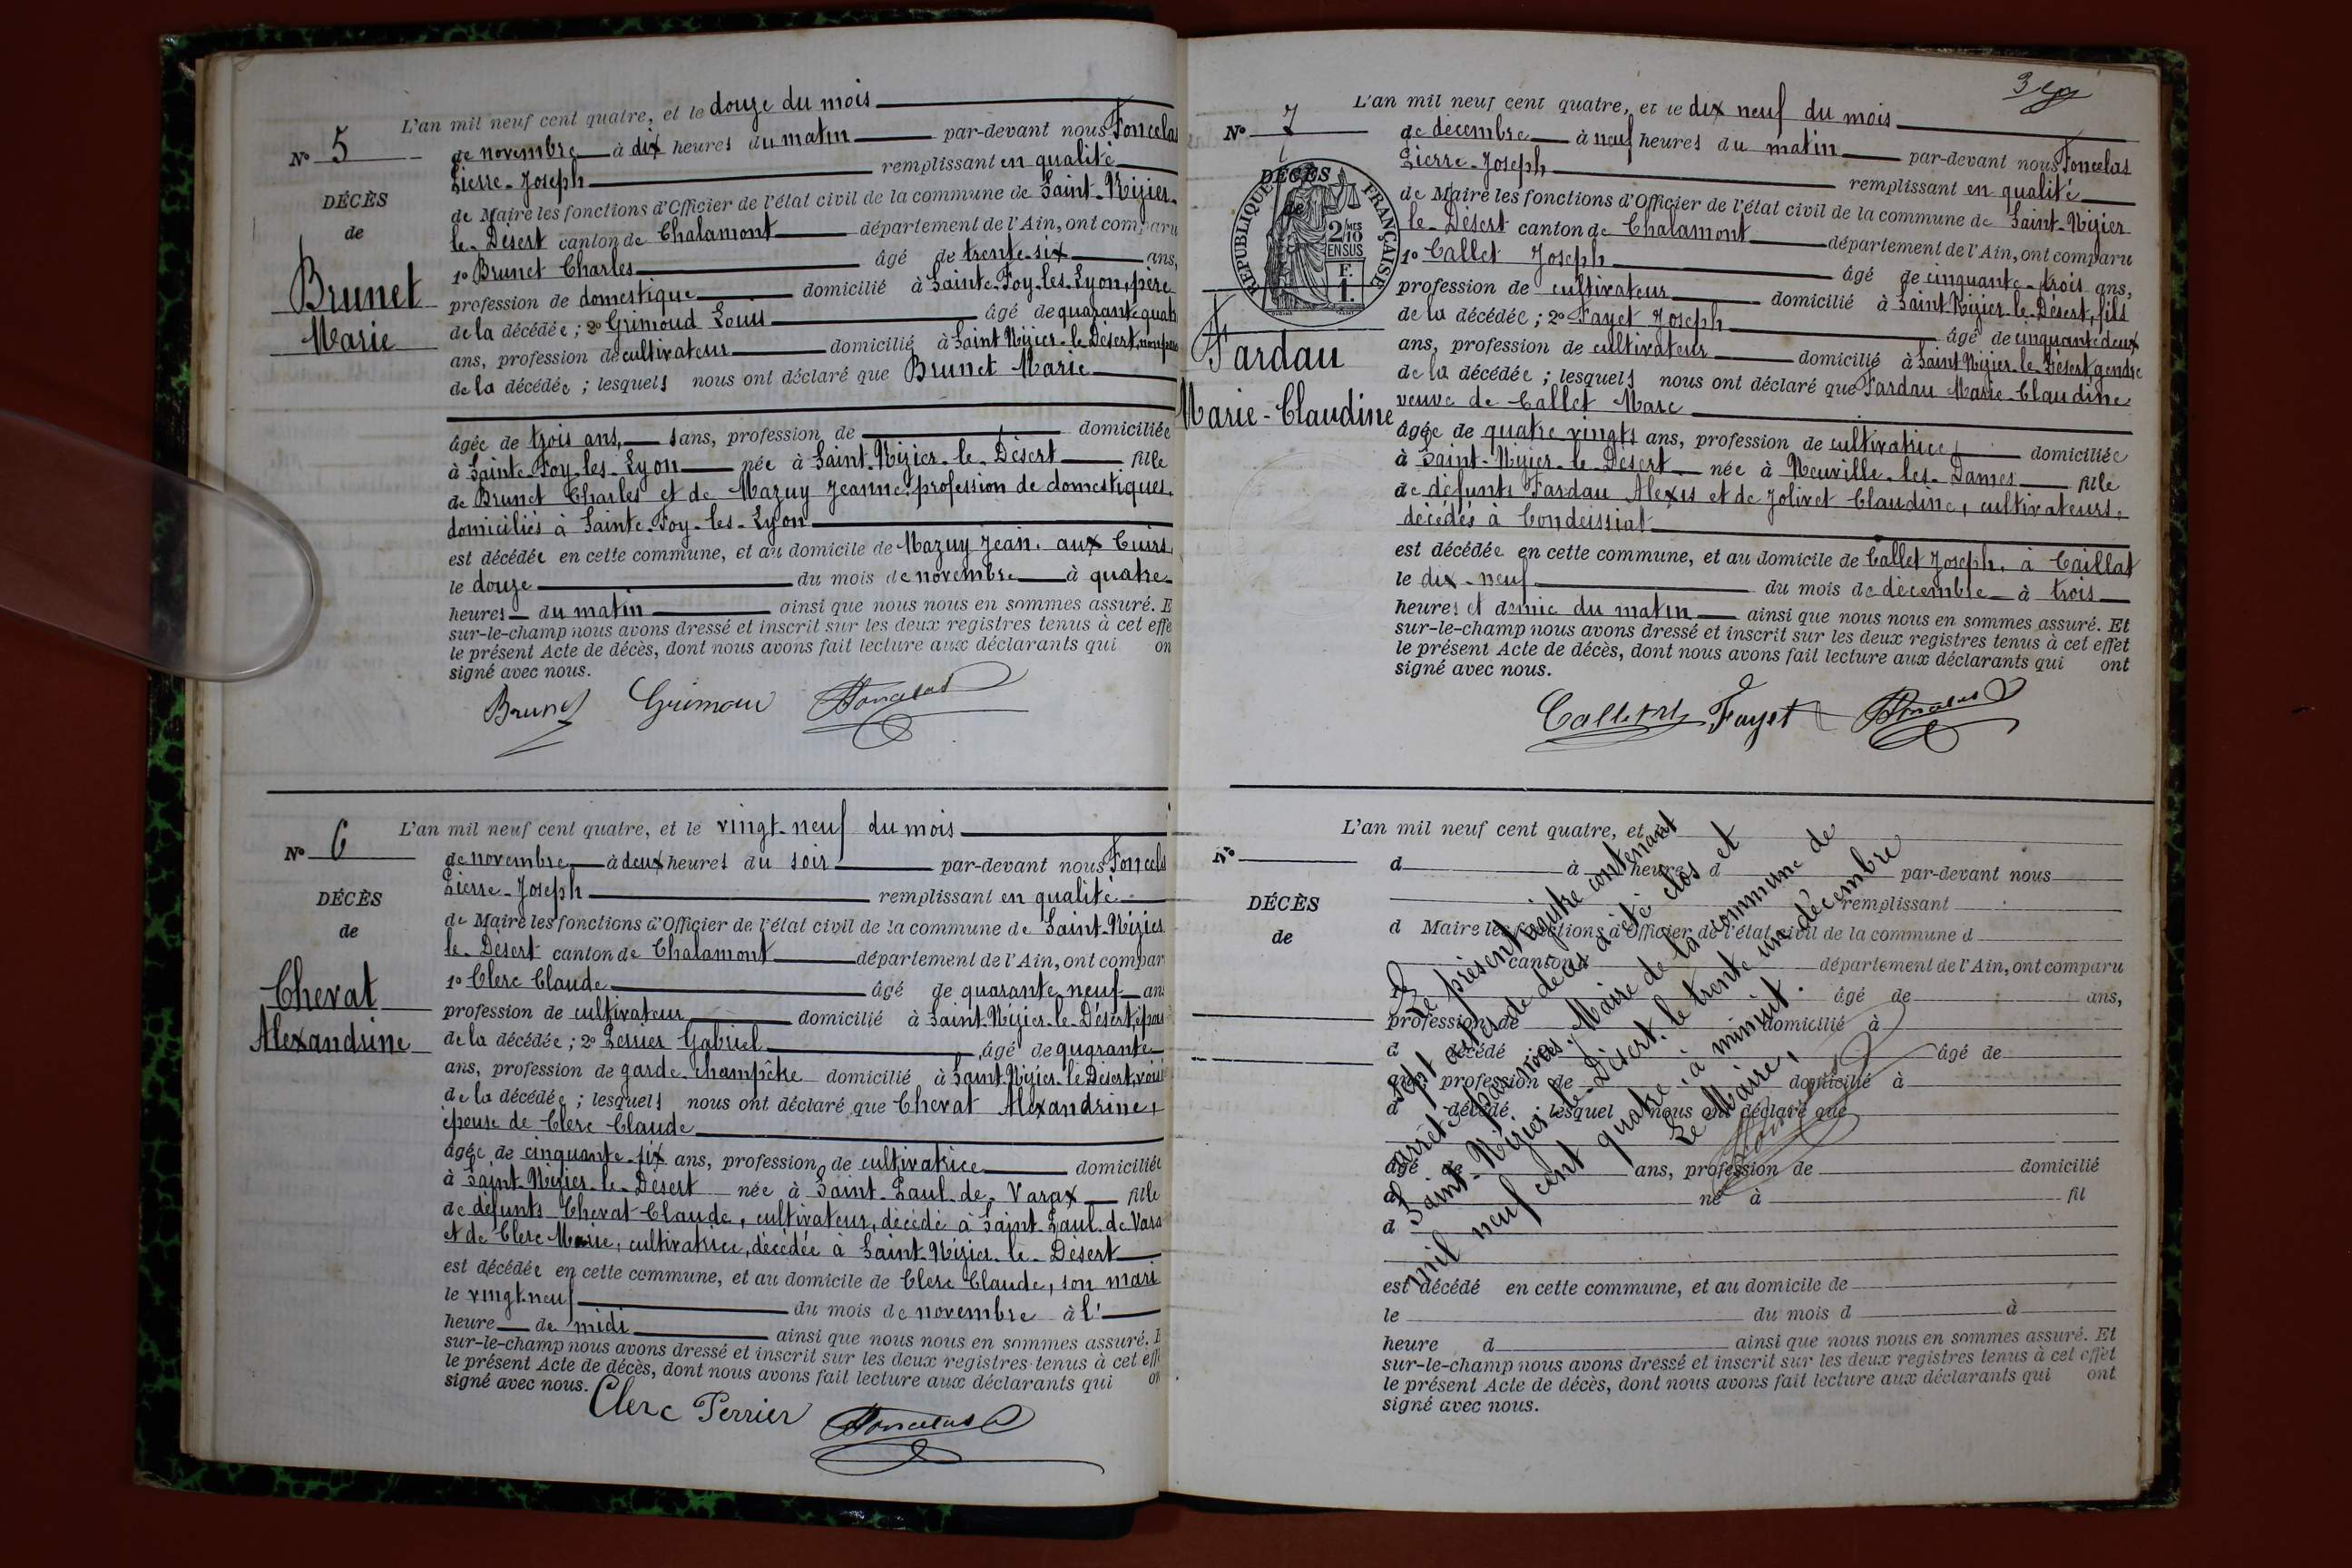 L'an mil neuf cent quatre, et le douze du mois
N° 5
de novembre à dix heures du matin par-devant nous Foncelas
Pierre-Joseph remplissant en qualité
DÉCÈS
de Maire les fonctions d'Officier de l'état civil de la commune de Saint-Nizier-
de
le-Désert canton de Chalamont département de l'Ain, ont comparu
1° Brunet Charles âgé de trente-six ans,
Brunet
profession de domestique domicilié à Sainte-Foy-les-Lyon, père
Marie
de la décédée ; 2° Grimoud Louis âgé de quarante quat
ans, profession de cultivateur domicilié à Saint Nizier-le-Désert,
de la décédée ; lesquels nous ont déclaré que Brunet Marie
âgée de trois ans, sans, profession de domiciliée
à Sainte-Foy-les-Lyon née à Saint-Nizier-le-Désert fille
de Brunet Charles et de Mazuy Jeanne: profession de domestiques,
domiciliés à Sainte-Foy-les-Lyon
est décédée en cette commune, et au domicile de Mazuy Jean, aux Cuirs
le douze du mois de novembre à quatre
heures du matin ainsi que nous nous en sommes assuré. E
sur-le-champ nous avons dressé et inscrit sur les deux registres tenus à cet effe
le présent Acte de décès, dont nous avons fait lecture aux déclarants qui on
signé avec nous.
Brunet Grimou Foncelas
L'an mil neuf cent quatre, et le vingt-neuf du mois
N° 6
de novembre à deux heures du soir par-devant nous Foncela
Pierre-Joseph remplissant en qualité
DÉCÈS
de Maire les fonctions d'Officier de l'état civil de la commune de Saint-Nizier
de
le-Désert canton de Chalamont département de l'Ain, ont compar
1° Clerc Claude âgé de quarante neuf ans
Chevat
profession de cultivateur domicilié à Saint-Nizier-le-Désert, épou
Alexandrine
de la décédée ; 2° Perrier Gabriel âgé de quarante
ans, profession de garde-champêtre domicilié à Saint-Nizier-le-Désert, voisi
de la décédée ; lesquels nous ont déclaré que Chevat Alexandrine,
épouse de Clerc Claude
âgée de cinquante-six ans, profession de cultivatrice domiciliée
à Saint-Nizier-le-Désert née à Saint-Paul-de-Varax fille
de défunts Chevat Claude, cultivateur, décédé à Saint-Paul-de-Vara
et de Clerc Marie, cultivatrice, décédée à Saint-Nizier-le-Désert
est décédée en cette commune, et au domicile de Clerc Claude, son mari
le vingt-neuf du mois de novembre à l'
heure de midi ainsi que nous nous en sommes assuré. E
sur-le-champ nous avons dressé et inscrit sur les deux registres tenus à cet effe
le présent Acte de décès, dont nous avons fait lecture aux déclarants qui on
signé avec nous.
Clerc Perrier Foncelas
3
L'an mil neuf cent quatre, et le dix neuf du mois
N° 7
de décembre à neuf heures du matin par-devant nous Foncelas
Pierre-Joseph remplissant en qualité
DÉCÈS
de
RÉPUBLIQUE FRANÇAISE
2/10 MES
EN SUS
F.
1.
de Maire les fonctions d'Officier de l'état civil de la commune de Saint-Nizier
le-Désert canton de Chalamont département de l'Ain, ont comparu
1° Callet Joseph âgé de cinquante-trois ans,
profession de cultivateur domicilié à Saint Nizier-le-Désert, fils
de la décédée ; 2° Fayet Joseph âgé de cinquante deux
Fardau
ans, profession de cultivateur domicilié à Saint Nizier-le-Désert, gendre
Marie-Claudine
de la décédée ; lesquels nous ont déclaré que Fardau Marie-Claudine,
veuve de Callet Marc
âgée de quatre vingts ans, profession de cultivatrice, domiciliée
à Saint-Nizier-le-Désert née à Neuville-les-Dames fille
de défunts Fardau Alexis et de Jolivet Claudine, cultivateurs,
décédés à Condeissiat
est décédée en cette commune, et au domicile de Callet Joseph, à Caillat
le dix-neuf du mois de décembre à trois
heures et demie du matin ainsi que nous nous en sommes assuré. Et
sur-le-champ nous avons dressé et inscrit sur les deux registres tenus à cet effet
le présent Acte de décès, dont nous avons fait lecture aux déclarants qui ont
signé avec nous.
Callet Fayet Foncelas
L'an mil neuf cent quatre, et le
N°
d à heure d par-devant nous
remplissant
DÉCÈS
d Maire les fonctions d'Officier de l'état civil de la commune d
de
canton d département de l'Ain, ont comparu
1° âgé de ans,
profession de domicilié à
d décédé âgé de
ans, profession de domicilié à
d décédé ; lesquel nous ont déclaré que
âgé de ans, profession de domicilié
à né à fil
d
est décédé en cette commune, et au domicile de
le du mois d à
heure d ainsi que nous nous en sommes assuré. Et
sur-le-champ nous avons dressé et inscrit sur les deux registres tenus à cet effet
le présent Acte de décès, dont nous avons fait lecture aux déclarants qui ont
signé avec nous.
Le présent registre contenant
sept actes de décès a été clos et
arrêté par nous, Maire de la commune de
Saint-Nizier-le-Désert, le trente un décembre
mil neuf cent quatre, à minuit.
Le Maire,
Foncelas